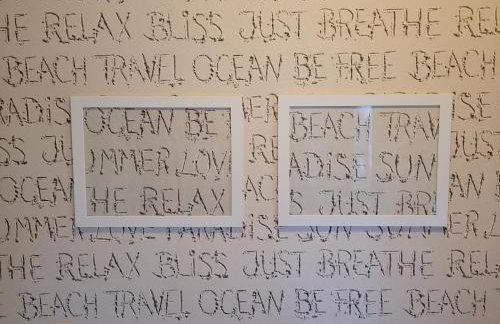 HE RELAX BLISS JUST BREATHE REL
BEACH TRAVEL OCEAN BE FREE BEACH
RADISE OCEAN BE ER BEACH TRAV
SS JU UMMER LOV RE ADISE SUN JUS
OCEAN HE RELAX AC S JUST BR AN
UMMER LOVE PARADISE SUN SUMMER L
THE RELAX BLISS JUST BREATHE REL
BEACH TRAVEL OCEAN BE FREE BEACH